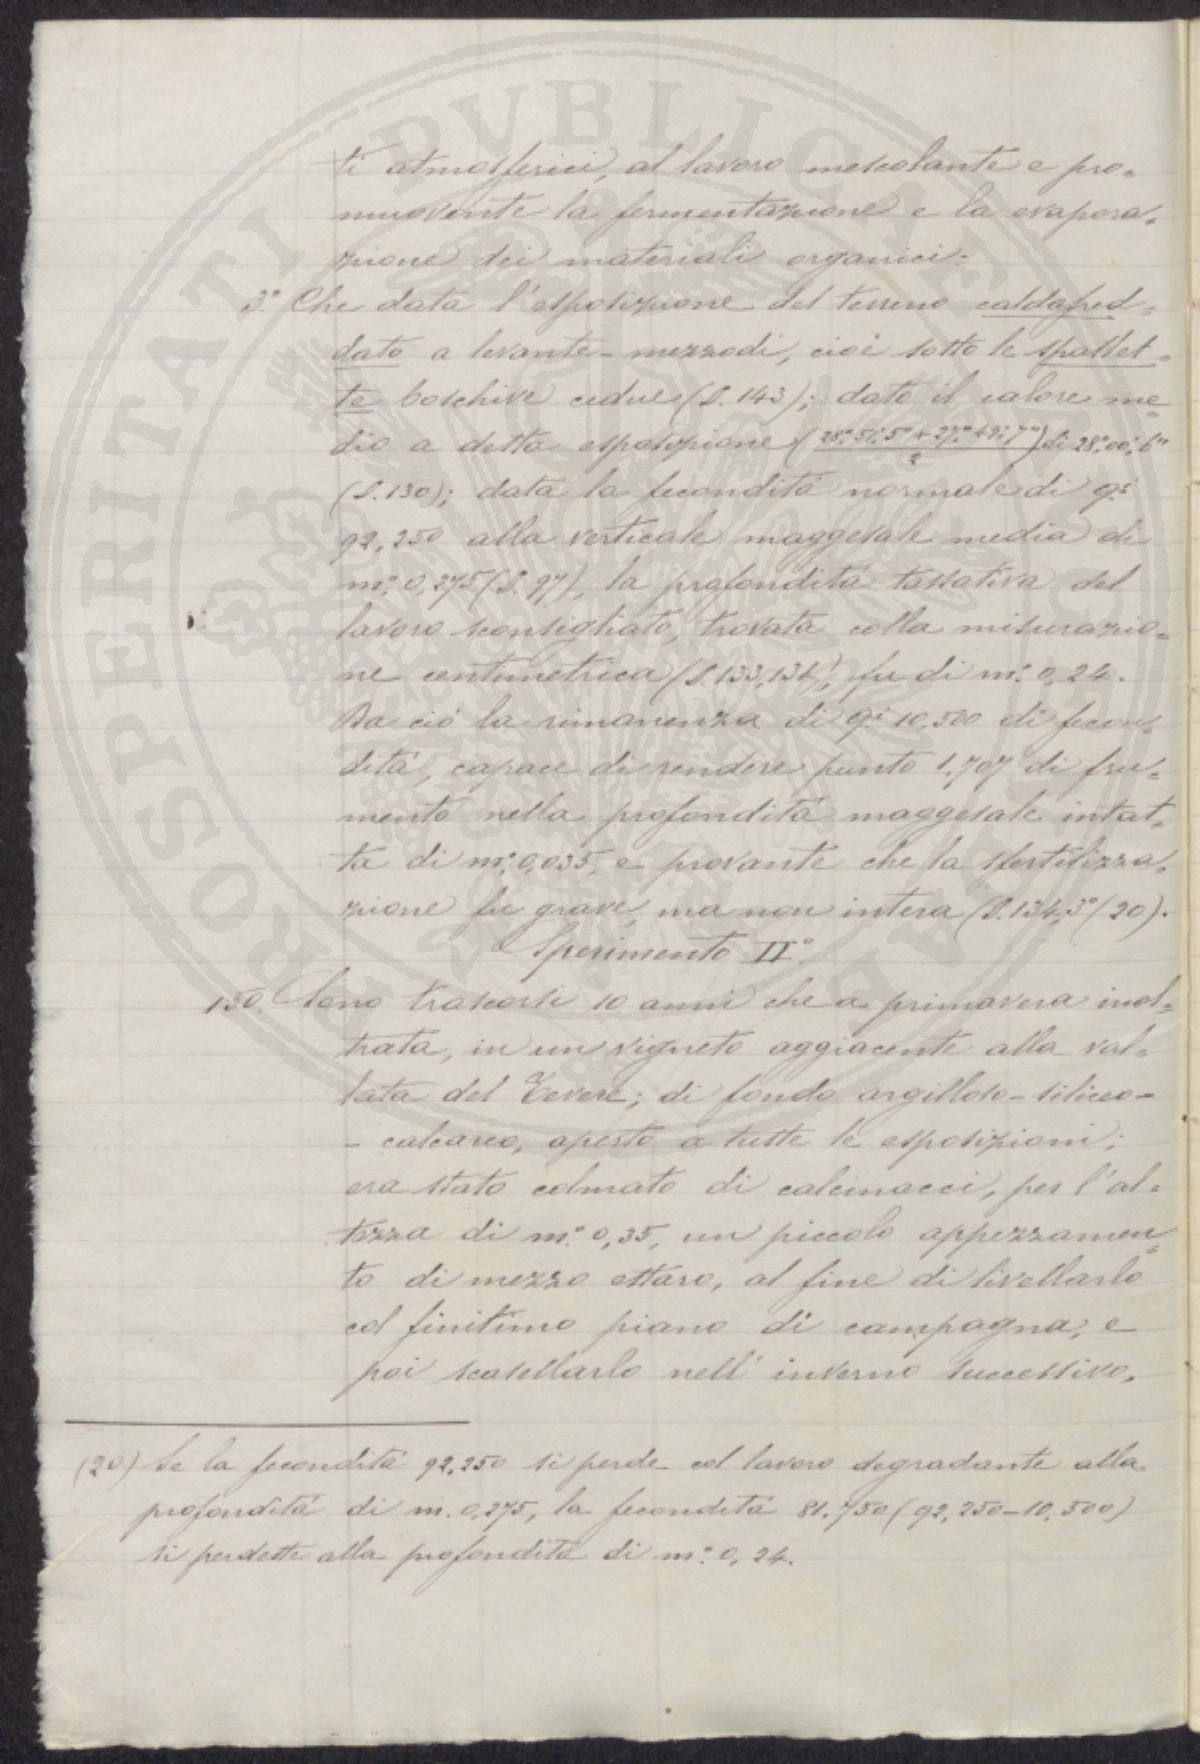 ti atmosferici, al lavoro mescolante e pro=
muovente la fermentazione e la evapora=
zione dei materiali organici:
3.° Che data l'esposizione del terreno caldafred=
dato a levante-mezzodi, cioè sotto le spallet=
te boschive cedue (§. 143); dato il calore me
dio a detta esposizione (28.° 51.' 5" + 27.° 49.' 7" / 2) di 28.° 00.' 6"
(§. 130); data la fecondità normale di q.i
92,250 alla verticale maggesale media di
m.° 0,275 (§. 97), la profondità tassativa del
lavoro sconsigliato, trovata colla misurazio=
ne centimetrica (§. 133, 134), fu di m.° 0,24.
Da ciò la rimanenza di q.i 10,500 di fecon=
dità, capace di rendere punto 1.707 di fru=
mento nella profondità maggesale intat=
ta di m.° 0,035, e provante che la sfertilizza=
zione fu grave, ma non intera (§. 134, 3° (20).
Sperimento II.°
150. Sono trascorsi 10 anni che a primavera inol=
trata, in un vigneto aggiacente alla val=
lata del Tevere; di fondo argilloso-siliceo-
- calcareo, aperto a tutte le esposizioni;
era stato colmato di calcinacci, per l'al=
tezza di m.° 0,35, un piccolo appezzamen=
to di mezzo ettaro, al fine di livellarlo
col finitimo piano di campagna, e
poi scasellarlo nell'inverno successivo.
(20) Se la fecondità 92,250 si perde col lavoro degradante alla
profondità di m. 0,275, la fecondità 81.750 (92,250-10,500)
si perdette alla profondità di m.° 0,24.
PROSPERITATI PVBLICAE